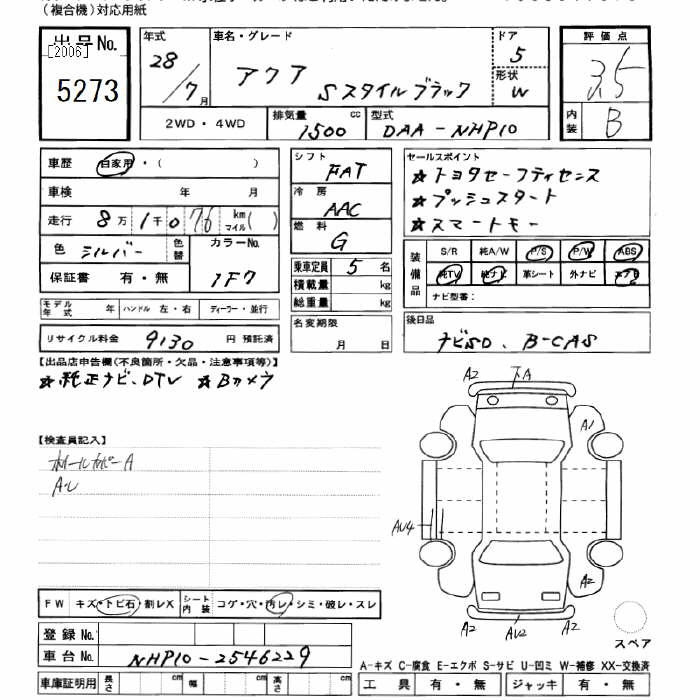 (複合機)対応用紙
出品No.
[2006]
5273
年式
28/7月
車名・グレード
アクア
Sスタイルブラック
ドア
5
形状
W
評価点
3.5
内装
B
2WD・4WD
排気量
1500 cc
型式
DAA-NHP10
車歴 自家用・( )
車検 年 月
走行 8万1千076 km マイル( )
色 シルバー
色替
カラーNo.
1F7
保証書 有・無
モデル年式 年 ハンドル 左・右 ディーラー・並行
リサイクル料金 9130 円 預託済
シフト
FAT
冷房
AAC
燃料
G
乗車定員 5 名
積載量 kg
総重量 kg
名変期限
月 日
セールスポイント
★トヨタセーフティセンス
★プッシュスタート
★スマートキー
装備品
S/R 純A/W P/S P/W ABS
純TV 純ナビ 革シート 外ナビ エアB
ナビ型番:
後日品
ナビSD、B-CAS
【出品店申告欄(不良箇所・欠品・注意事項等)】
★純正ナビ、DTV ★Bカメラ
【検査員記入】
ホイールカバーA
A・レ
A2
A
A1
AU4
A2
A2
AU2
A2
スペア
FW キズ・トビ石・割レX
シート内装
コゲ・穴・汚レ・シミ・破レ・スレ
登録No.
車台No. NHP10-2546229
車庫証明用 長さ cm 幅 cm 高さ cm
A-キズ C-腐食 E-エクボ S-サビ U-凹ミ W-補修 XX-交換済
工具 有・無 ジャッキ 有・無